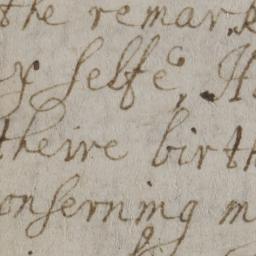 the remark
y selfe, H
theire birth
onserning m